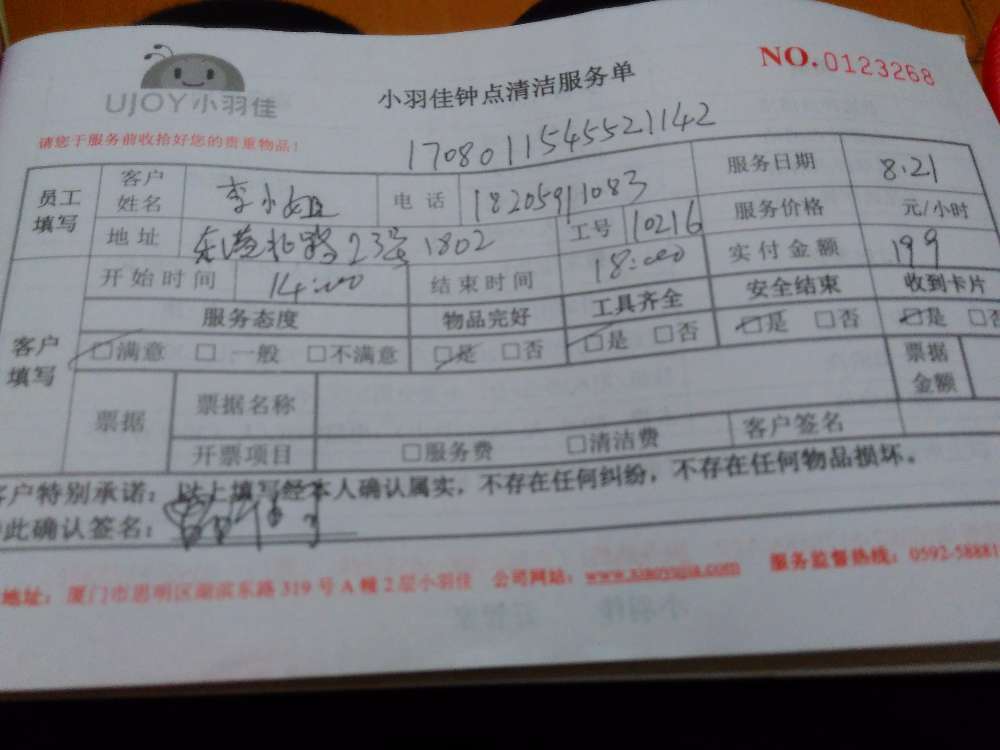 UJOY小羽佳
小羽佳钟点清洁服务单
NO.0123268
请您于服务前收拾好您的贵重物品!
1708011545521142
员工填写 客户姓名 李小姐 电话 18205911083 服务日期 8.21
地址 23号1802 工号 10216 服务价格 元/小时
客户填写 开始时间 14:00 结束时间 18:00 实付金额 199
服务态度 物品完好 工具齐全 安全结束 收到卡片
□满意 □一般 □不满意 □是 □否 □是 □否 □是 □否 □是 □否
票据 票据名称 票据金额
开票项目 □服务费 □清洁费 客户签名
客户特别承诺:以上填写经本人确认属实,不存在任何纠纷,不存在任何物品损坏。
此确认签名:
地址:厦门市思明区湖滨东路319号A幢2层小羽佳 公司网站:www.xiaoyujia.com 服务监督热线:0592-58881